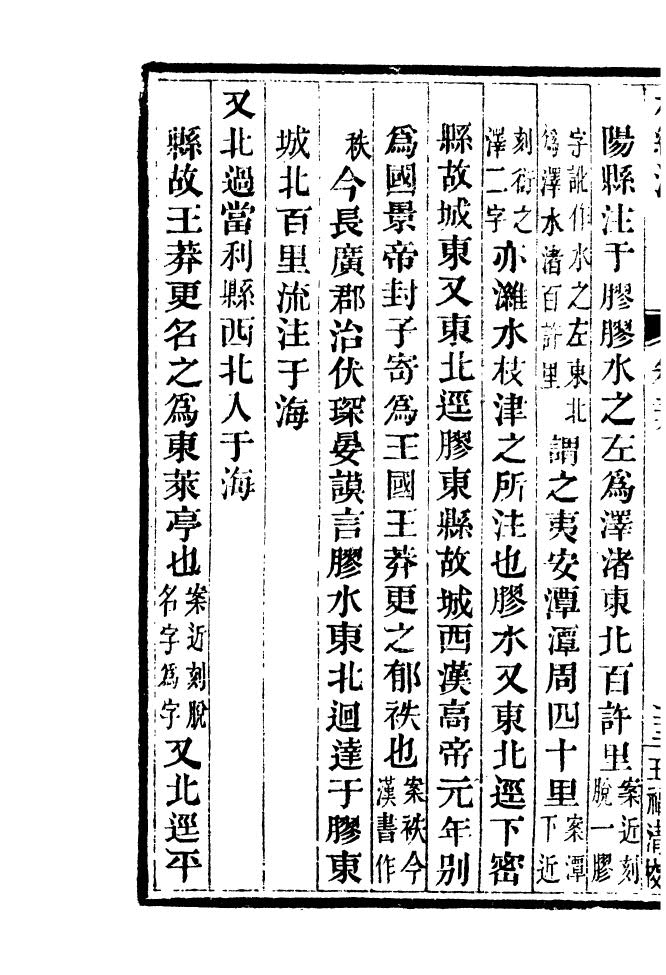 陽縣注于膠膠水之左爲澤渚東北百許里案近刻脫一膠
字訛作水之左東北爲澤水渚百許里謂之夷安潭潭周四十里案潭下近
刻衍之澤二字亦濰水枝津之所注也膠水又東北逕下密
縣故城東又東北逕膠東縣故城西漢高帝元年別
爲國景帝封子寄爲王國王莽更之郁袟也案袟今漢書作
秩今長廣郡治伏琛晏謨言膠水東北迴達于膠東
城北百里流注于海
又北過當利縣西北入于海
縣故王莽更名之爲東萊亭也案近刻脫名字爲字又北逕平